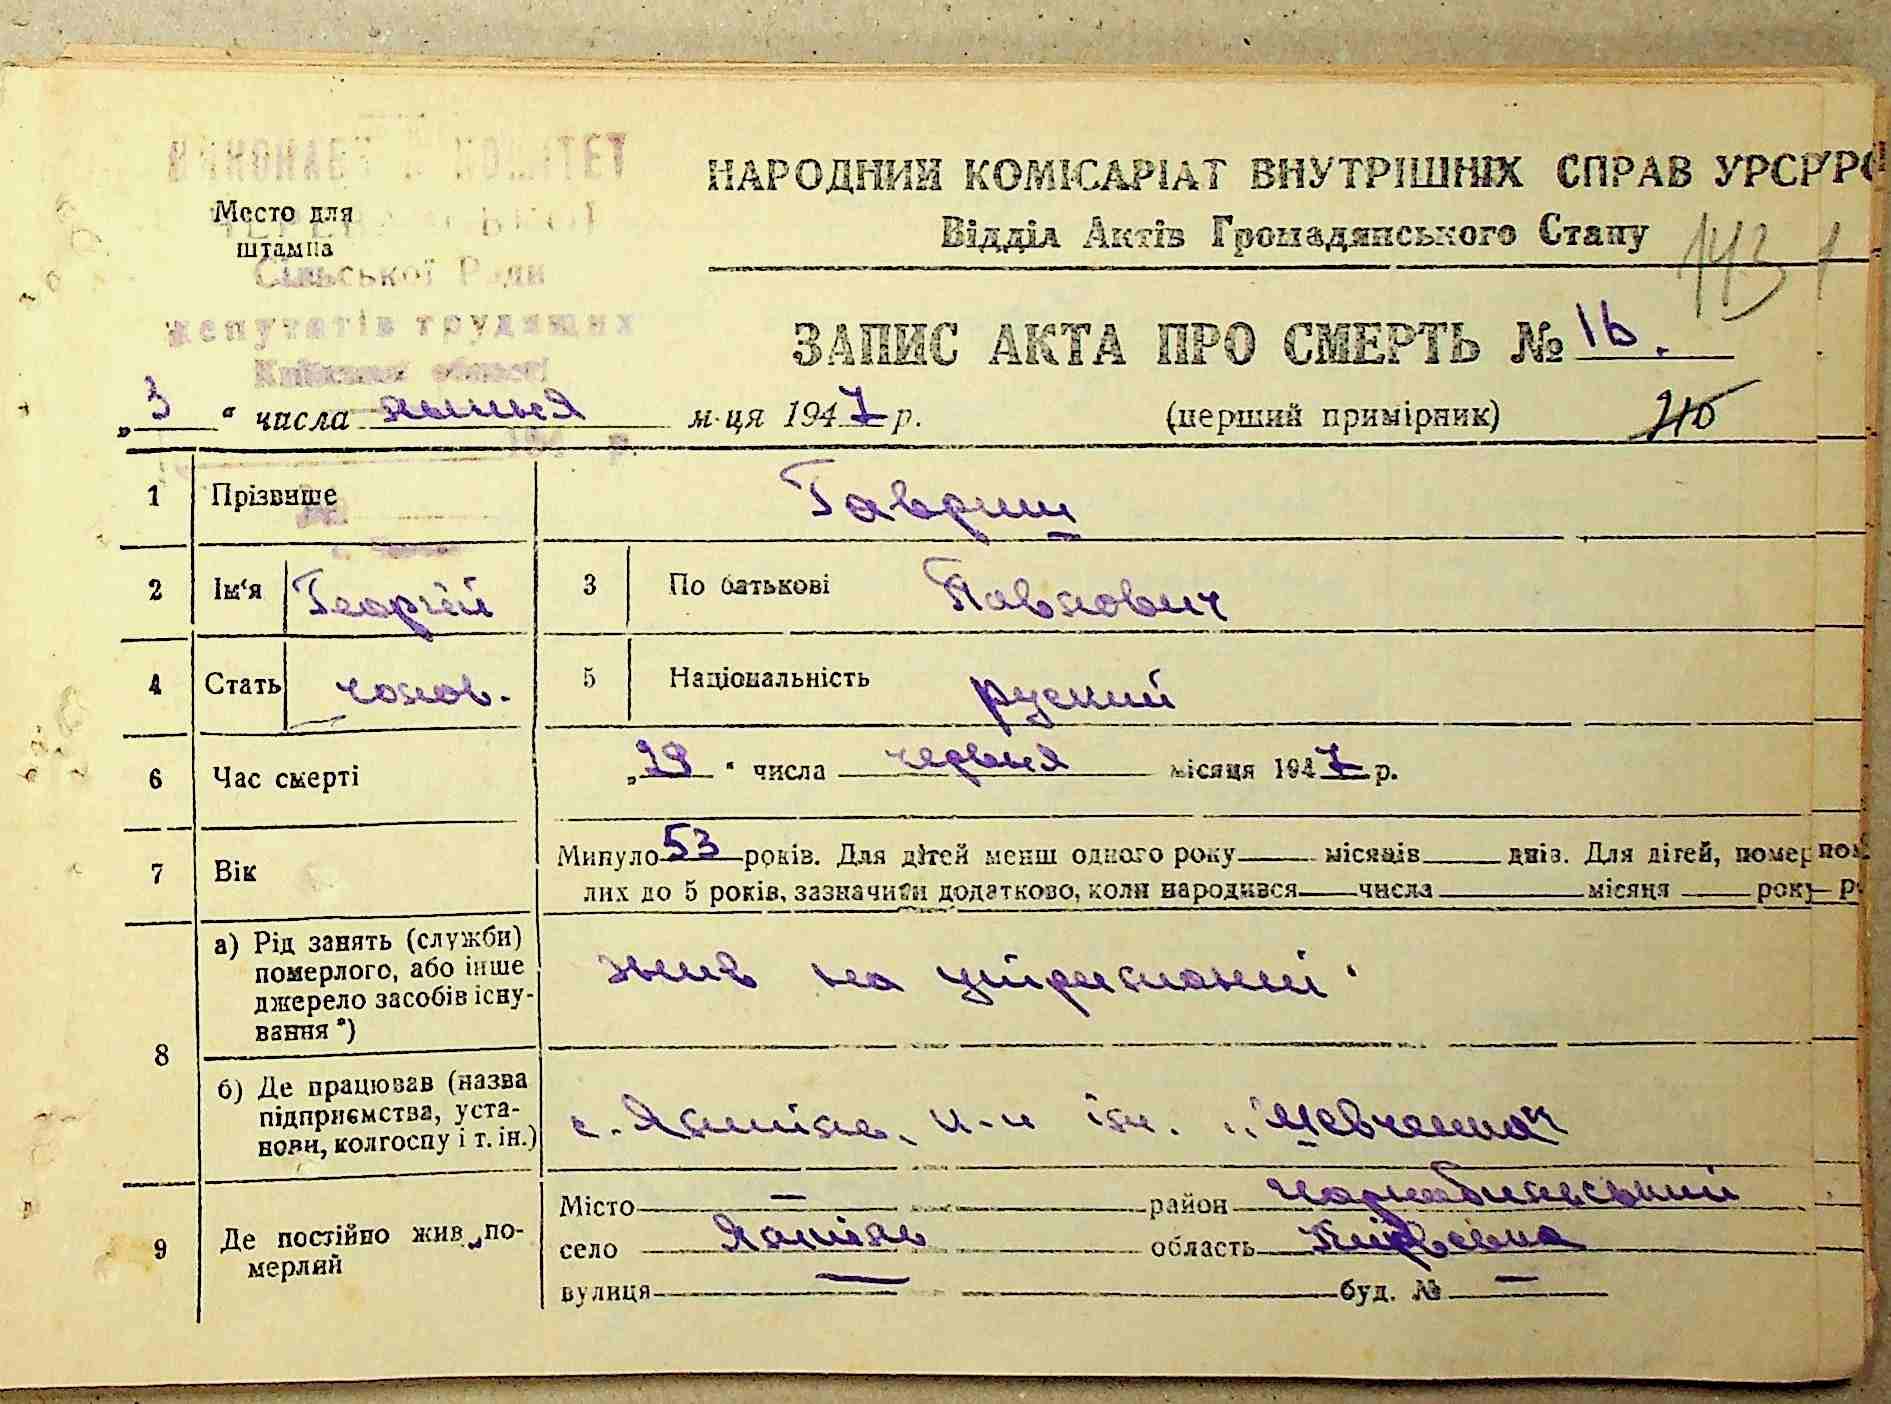 ВИКОНАВЧИЙ КОМІТЕТ
Сільської Ради
депутатів трудящих
Київської області
194 р.
Место для
штампа
НАРОДНИЙ КОМІСАРІАТ ВНУТРІШНІХ СПРАВ УРСР
Відділ Актів Громадянського Стану
143 1
ЗАПИС АКТА ПРО СМЕРТЬ № 16.
„3“ числа липня м-ця 1947 р. (перший примірник)
1 Прізвише Гавриш
2 Ім‘я Георгій 3 По батькові Павлович
4 Стать чолов. 5 Національність руский
6 Час смерті „29“ числа червня місяця 1947 р.
7 Вік Минуло 53 років. Для дітей менш одного року місяців днів. Для дітей, помер
лих до 5 років, зазначити додатково, коли народився числа місяця року
8 а) Рід занять (служби)
померлого, або інше
джерело засобів існу-
вання*)
жив на утриманні
б) Де працював (назва
підприємства, уста-
нови, колгоспу і т. ін.)
с. Ялшіль, к-п ім. „Шевченка“
9 Де постійно жив по-
мерлий
Місто — район Чорнобильський
село область Київська
вулиця — буд. № —